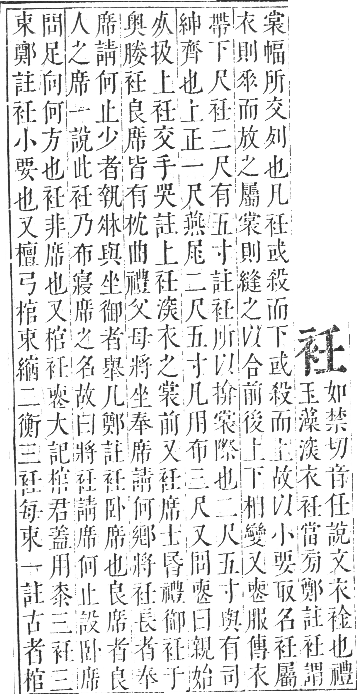 衽
如禁切音任說文衣䘳也禮
玉藻深衣衽當旁鄭註衽謂
裳幅所交列也凡衽或殺而下或殺而上故以小要取名衽屬
衣則垂而放之屬裳則縫之以合前後上下相變又喪服傳衣
帶下尺衽二尺有五寸註衽所以掩裳際也二尺五寸與有司
紳齊也上正一尺燕尾二尺五寸凡用布三尺又問喪曰親始
死扱上衽交手哭註上衽深衣之裳前又衽席士昏禮御衽于
奧媵衽良席皆有枕曲禮父母將坐奉席請何鄉將衽長者奉
席請何止少者執牀與坐御者舉几鄭註衽卧席也良席者席
人之席一說此衽乃布寢席之名故曰將衽請席何止設卧席
問足向何方也衽非席也又棺衽喪大記棺君蓋用桼三衽三
束鄭註衽小要也又檀弓棺束縮二衡三衽每束一註古者棺